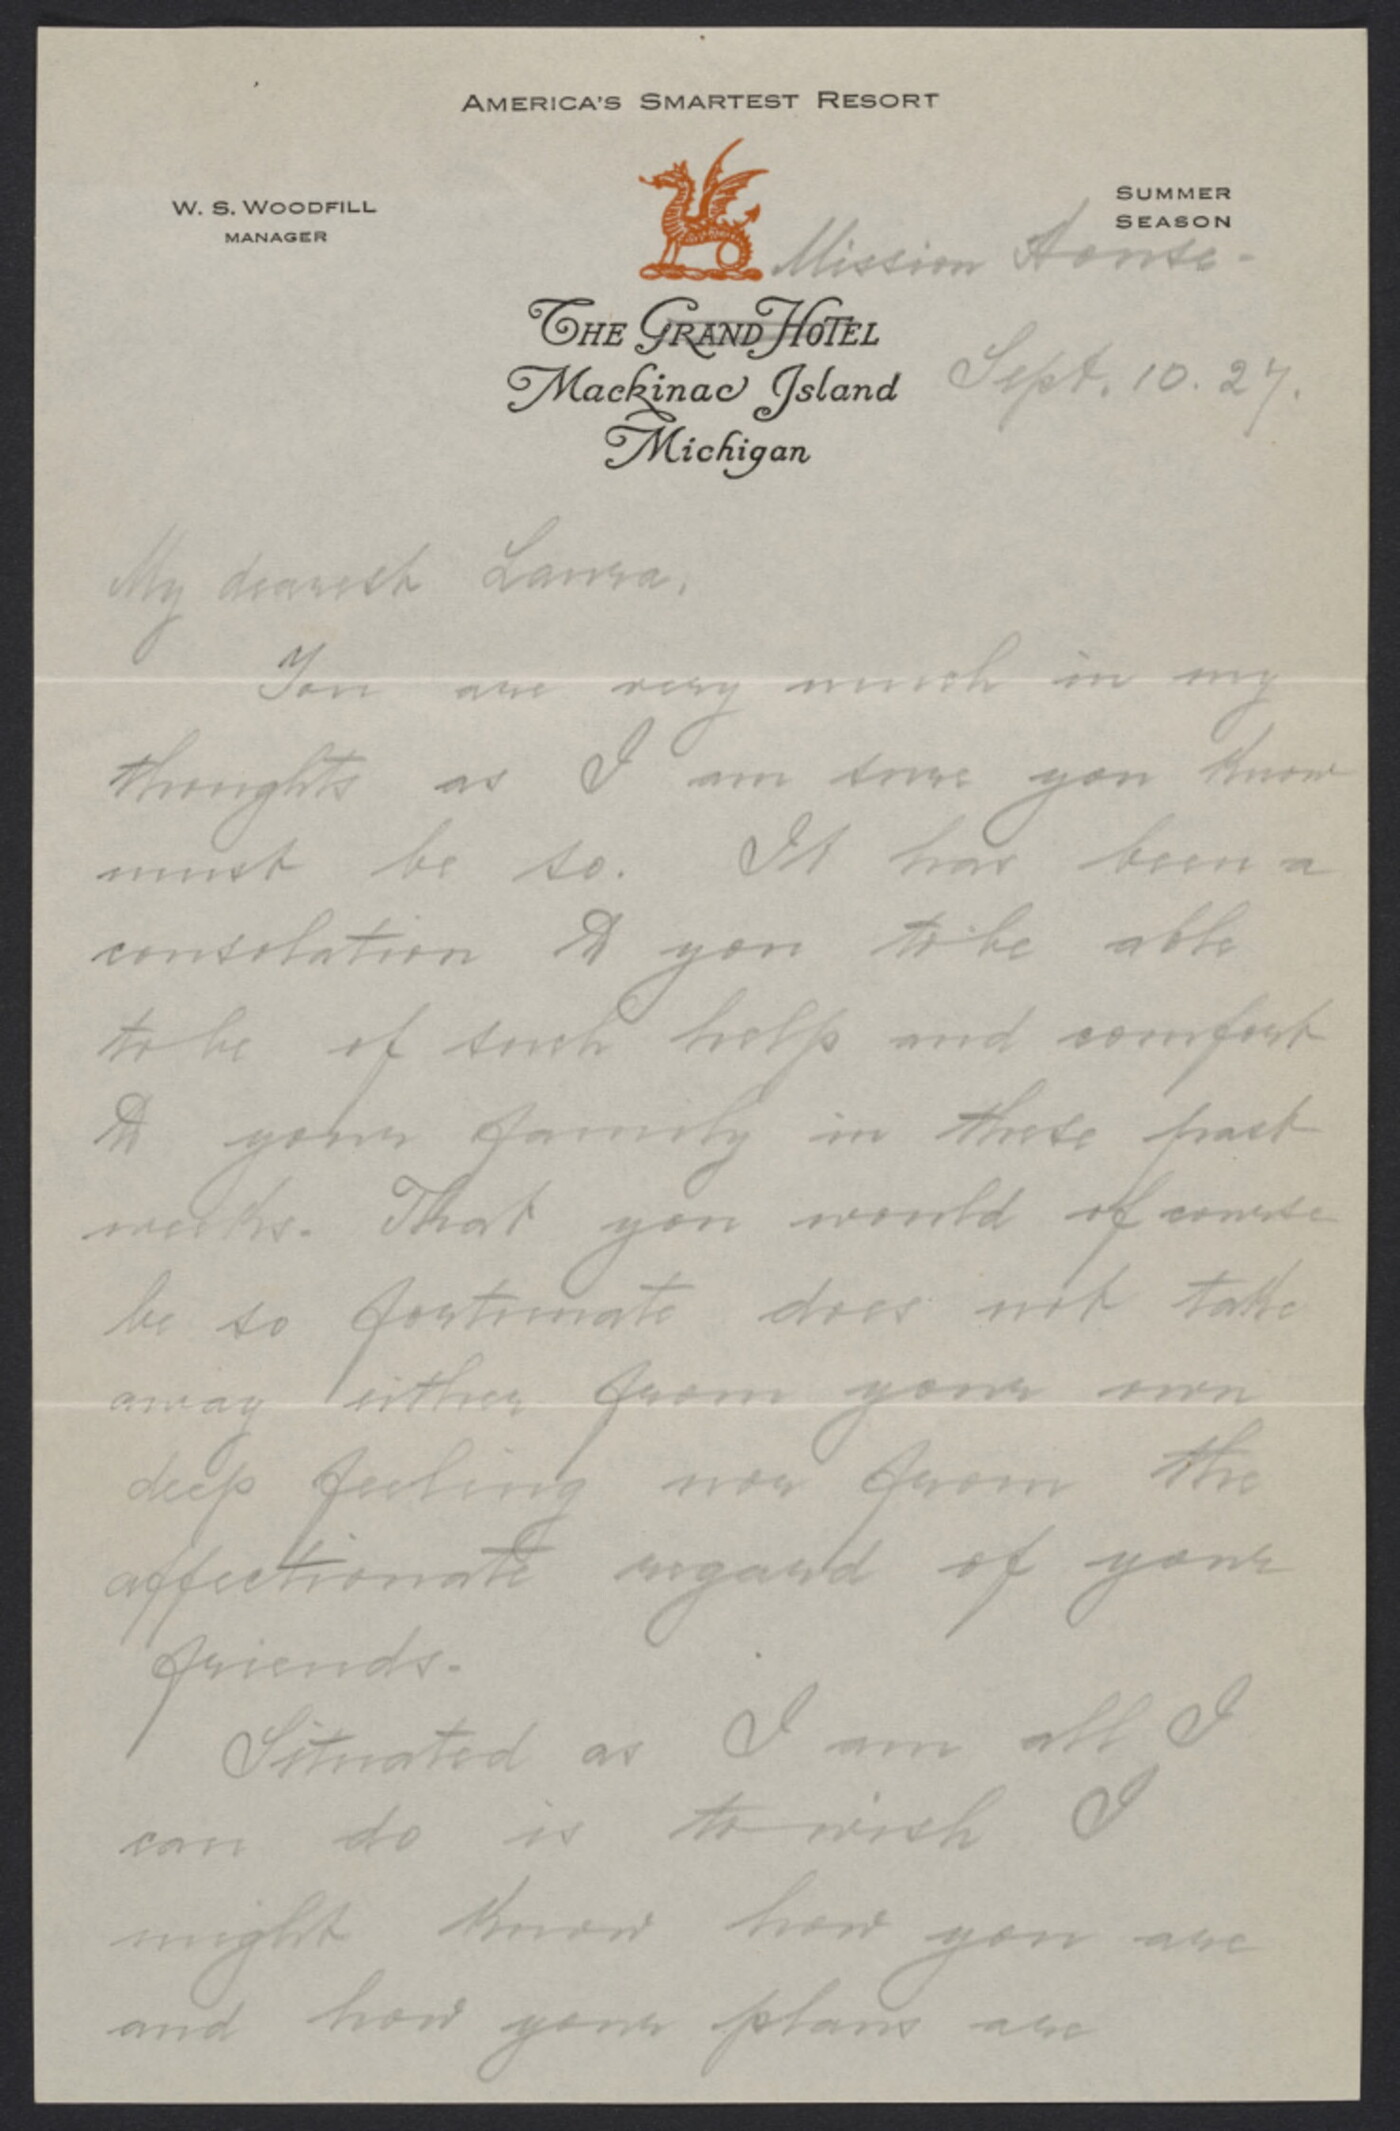 AMERICA'S SMARTEST RESORT
W. S. WOODFILL
MANAGER
SUMMER
SEASON
Mission House -
THE GRAND HOTEL
Mackinac Island
Sept. 10. 27.
Michigan
My dearest Laura,
You are very much in my
thoughts as I am sure you know
must be so. It has been a
consolation to you to be able
to be of such help and comfort
to your family in these past
weeks. That you would of course
be so fortunate does not take
away either from your own
deep feeling nor from the
affectionate regard of your
friends.
Situated as I am all I
can do is to wish I
might know how you are
and how your plans are